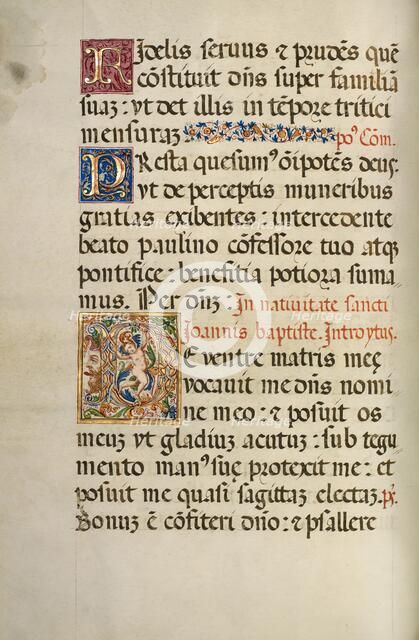 Fidelis seruus & prudēs quē
cōstituit dñs super familiā
suaȝ: vt det illis in tēpore tritici
mensuraȝ pꝰ Cōm.
Presta quesumꝰ oīpotēs deus,
vt de perceptis muneribus
gratias exibentes: intercedente
beato paulino cōfessore tuo atqꝫ
pontifice: benefitia potiora suma
mus. Per dñȝ: In natiuitate sancti
Joannis baptiste. Introytus.
De ventre matris meę
vocauit me dñs nomi
ne meo: & posuit os
meuȝ vt gladiuȝ acutuȝ: sub tegu
mento manꝰ suę protexit me: et
posuit me quasi sagittaȝ electaȝ. ps.
Bonuȝ ē cōfiteri dño: & psallere
Heritage